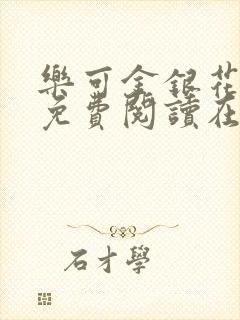 樂可金銀花
免費閱讀在
石才學